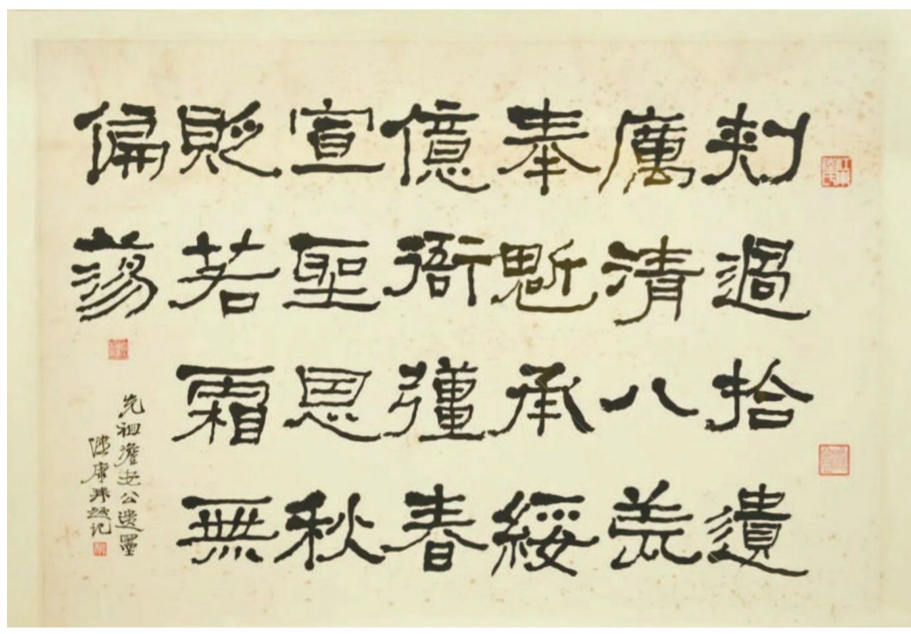 刺過拾遺
厲清八荒
奉魁承綏
億衙彊春
宣聖恩秋
貶若霜無
偏蕩
先祖澹公遗墨
康敬记